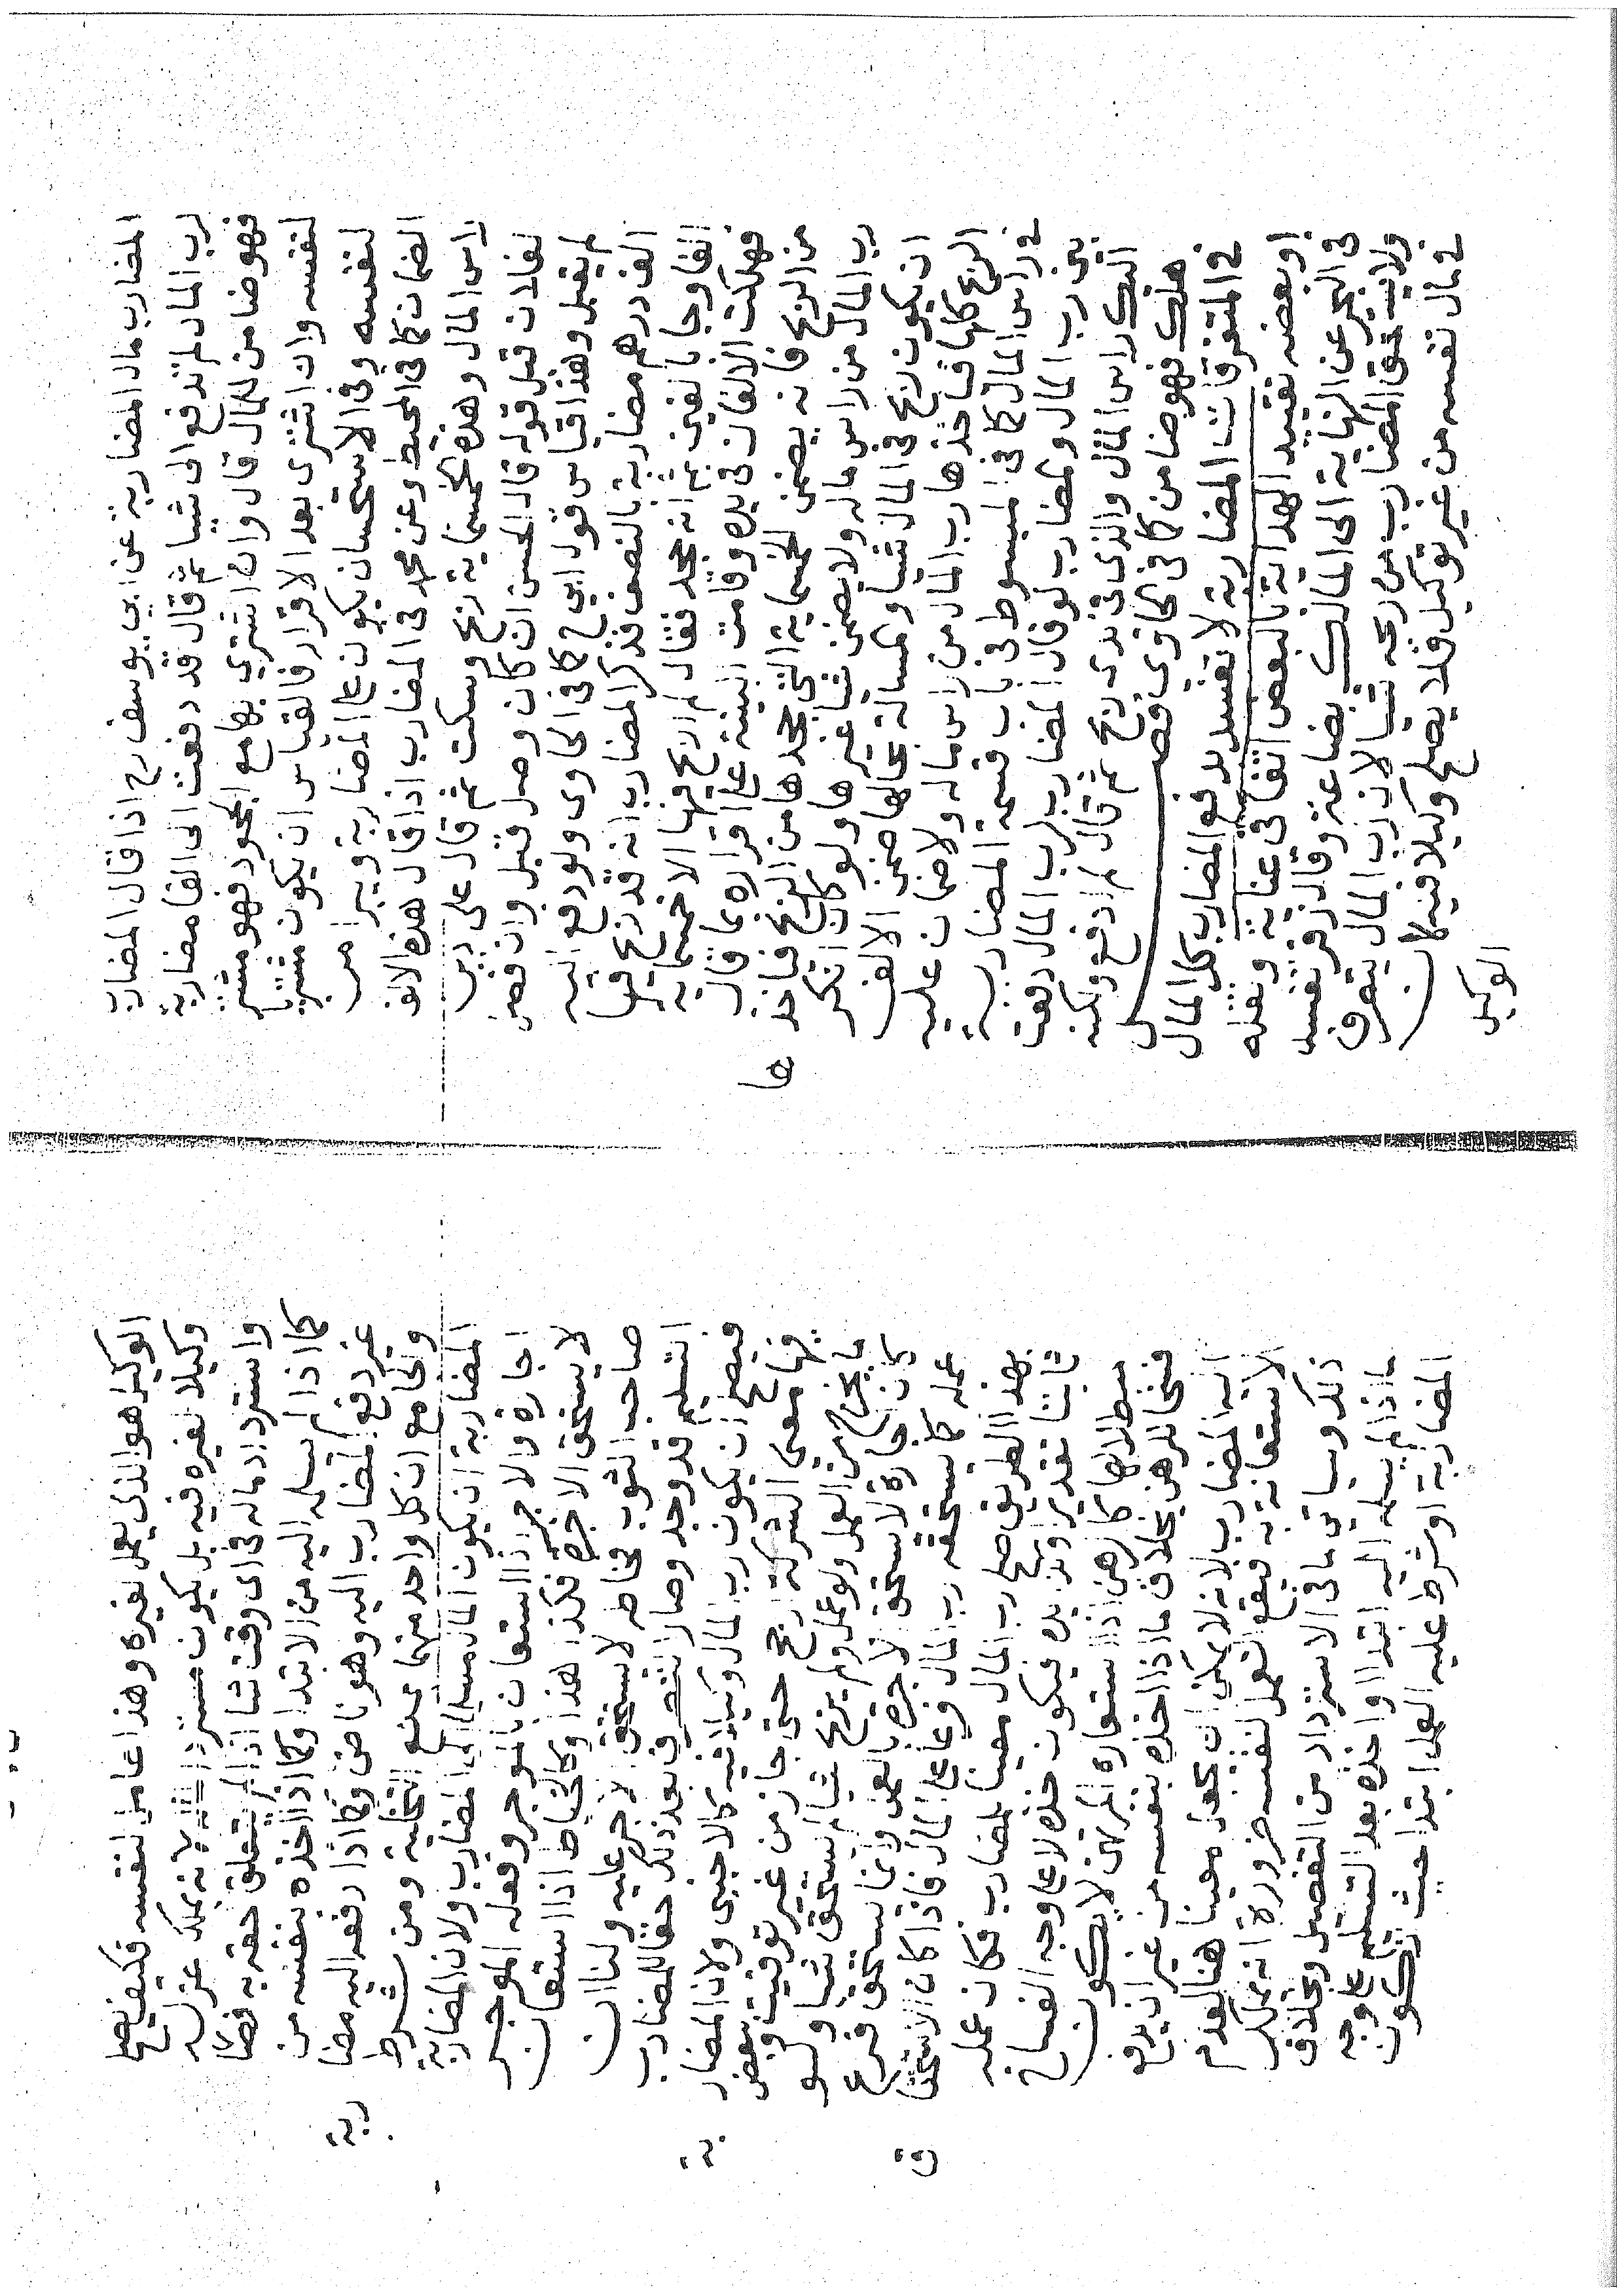 المضارب مال المضاربة عن ابى يوسف رح اذا قال المضارب
لرب المال لم تدفع الى شيئا ثم قال قد دفعت الى الفا مضاربة
فهو ضامن للمال قال وان اشترى بها مع الجحود فهو مشتر
لنفسه وان اشترى بعد الاقرار فالقياس ان يكون مشتريا
لنفسه وفى الاستحسان يكون على المضاربة ويبرا من
الضمان كما فى المحيط وعن محمد فى المضارب اذا قال هذه الالف
راس المال وهذه الخمسماية ربح وسكت ثم قال على دين
لفلان قبل قوله قال الحسن ان كان وصل قبل وان فصل
لم يقبل وهذا قياس قول ابى ح كما فى الحاوى ولو دفع اليه
الف درهم مضاربة بالنصف فذكر المضارب انه قد ربح فيها
الفا وجا بالفين ثم انه جحد فقال لم اربح فيها الا خمسماية
فهلكت الالفان فى يده وقامت البينة على اقراره بما قال
من الربح فانه يضمن الخمسماية التى جحدها من الربح فياخذها
رب المال من راس ماله ولا يضمن شيا غيرها ولو كان انكر
ان يكون ربح فى المال شيا والمسالة بحالها ضمن الالف
الربح كلها فياخذها رب المال من راس ماله ولا ضمان عليه
فى راس المال كما فى المبسوط فى باب قسمة المضارب
بين رب المال والمضارب لو قال المضارب لرب المال دفعت
اليك راس المال والذى فى يدى ربح ثم قال لم ادفع ولكنه
هلك فهو ضامن كما فى الحاوى فصل
فى المتفرقات المضاربة لا تفسد بدفع المضارب كل المال
او بعضه تقييد الهداية بالبعض اتفاقى عناية ونقله
فى البحر عن النهاية الى المالك بضاعة وقال زفر تفسد
ولا يستحق المضارب من ربحه شيا لان رب المال يتصرف
فى مال نفسه من غير توكيل فلا يصلح وكيلا فيه كان
الوكيل
الوكيل هو الذى يعمل لغيره وهذا عامل لنفسه فكيف يصح
وكيلا لغيره فيه بل يكون مستردا لانه يملك عزله
واسترداد ماله فى اى وقت شا اذا لم يتعلق حقه به فصار
كما اذا لم يسلمه اليه من الابتدا وكما اذا اخذه بنفسه من
غير دفع المضارب اليه وهو ناض وكما اذا دفعه اليه مضاربة
والجامع ان كل واحد منهما يمنع التخلية ومن شرط
المضاربة ان يكون المال مسلما الى المضارب ولان المضاربة
اجارة والاجير اذا استعان بالموجر وفعله الموجر
لا يستحق الاجرة فكذا هذا وكالخياط اذا استعان
صاحب الثوب فخاطه لا يستحق الاجر عليه ولنا ان
التسليم قد وجد وصار التصرف بعد ذلك حقا للمضارب
فيصح ان يكون رب المال وكيلا فيه كالاجنبى ولان المضاربة
فيها معنى الشركة ارجح حتى جازمن غير توقيت وبعض
ما يخرج من العمل ولو عمل ولم يربح شيا لم يستحق شيا ولو
كان اجارة لا ستحق الاجرة بالعمل وانما يستحق فرع
عمله كما يستحقه رب المال فرعا على المال فاذا كان الاستحقاق
بهذا الطريق صلح رب المال معينا للمضارب فكان عمله
ثابتا تقديرا ويده فيكون اخذه لا على وجه الفساخ
مبطلا لها كالرهن اذا استعاره المرتهن لا يكون
فسخا للرهن بخلاف ما اذا اخذه بنفسه من غير ان يدفع
اليه المضارب لانه لا يمكن ان يجعل معينا هنا لعدم
الاستعانة به فيقع العمل لنفسه ضرورة انه يملك
ذلك وسياتى ما فى الاسترداد من التفصيل وبخلاف
ما اذا لم يسلمه اليه ابتدا او اخذه بعد التسليم على وجه
المضاربة او شرط عليه العمل ابتدا حيث تكون